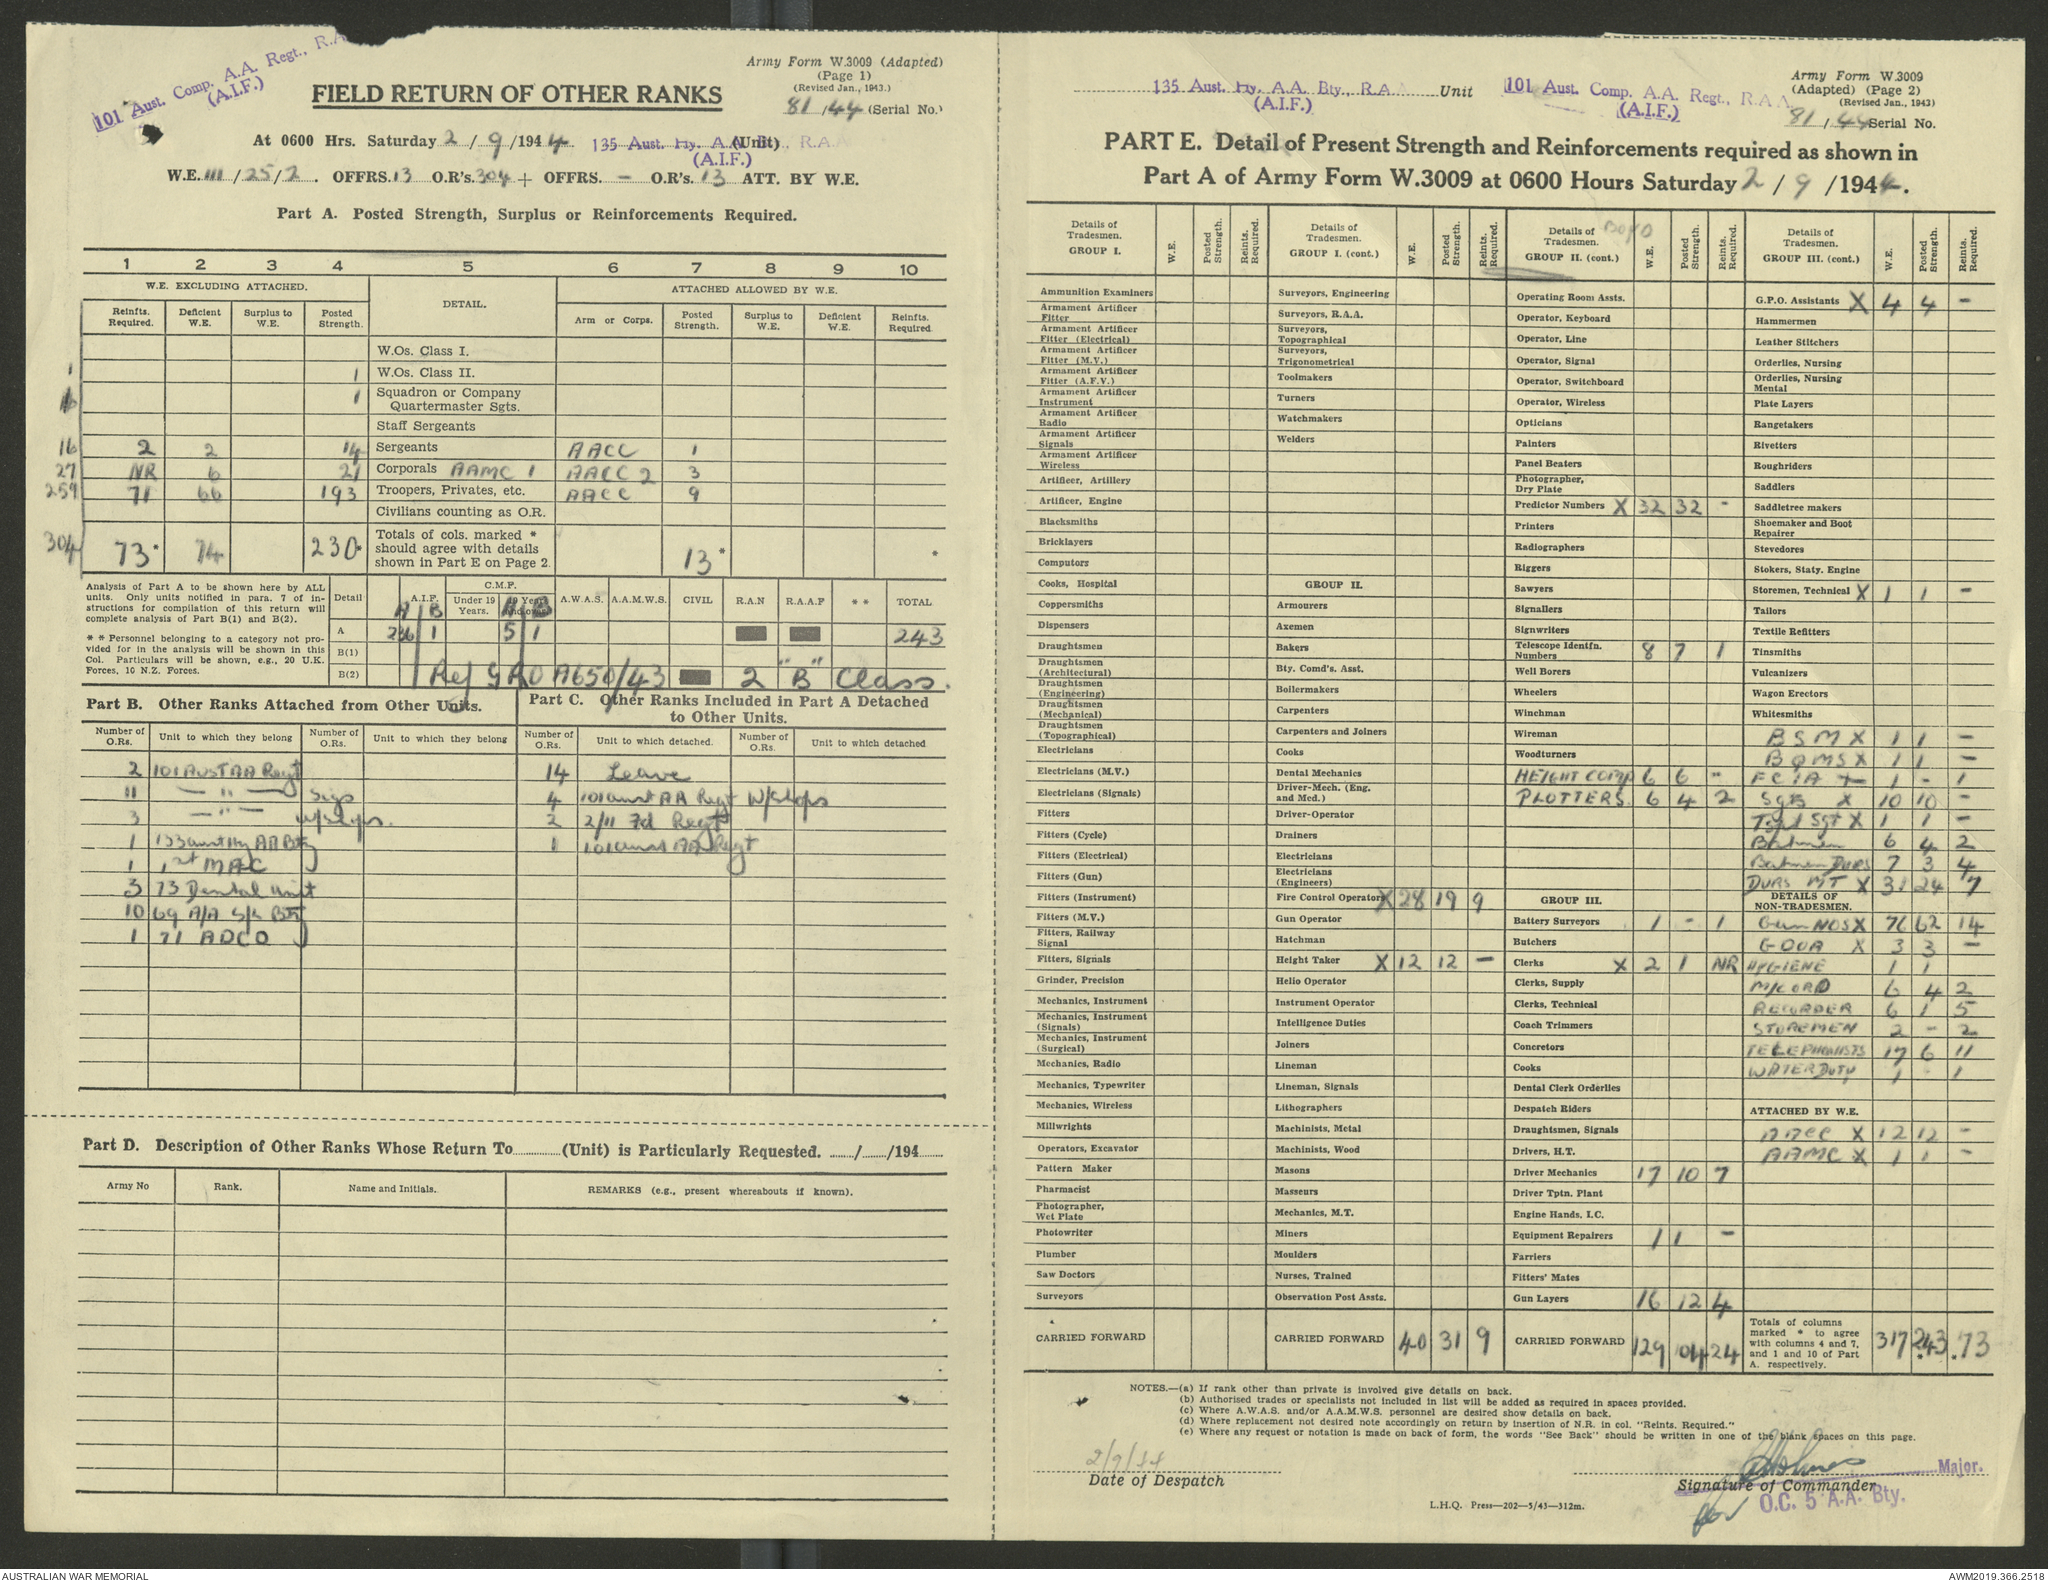 101 Aust. Comp. A.A. Regt., R.A
(A.I.F.)
Army Form W.3009 (Adapted)
(Page 1)
(Revised Jan., 1943.)
81/44 (Serial No.)
FIELD RETURN OF OTHER RANKS
At 0600 Hrs. Saturday 2/9/1944. 135 Aust. Hy. A.A. Bty., R.A.A (Unit)
(A.I.F.)
W.E. III/25/2. OFFRS. 13 O.R's. 304 + OFFRS. – O.R's. 13 ATT. BY W.E.
Part A. Posted Strength, Surplus or Reinforcements Required.
1 2 3 4 5 6 7 8 9 10
W.E. EXCLUDING ATTACHED. DETAIL. ATTACHED ALLOWED BY W.E.
Reinfts. Required. Deficient W.E. Surplus to W.E. Posted Strength. Arm or Corps. Posted Strength. Surplus to W.E. Deficient W.E. Reinfts. Required.
W.Os. Class I.
1 1 W.Os. Class II.
1 Squadron or Company Quartermaster Sgts.
Staff Sergeants
16 2 2 14 Sergeants AACC 1
27 NR 6 21 Corporals AAMC 1 AACC 2 3
259 71 66 193 Troopers, Privates, etc. AACC 9
Civilians counting as O.R.
304 73* 74 230* Totals of cols. marked * should agree with details shown in Part E on Page 2. 13* *
Analysis of Part A to be shown here by ALL units. Only units notified in para. 7 of instructions for compilation of this return will complete analysis of Part B(1) and B(2).
* * Personnel belonging to a category not provided for in the analysis will be shown in this Col. Particulars will be shown, e.g., 20 U.K. Forces, 10 N.Z. Forces.
Detail A.I.F. C.M.F. Under 19 Years. 19 Years and over A.W.A.S. A.A.M.W.S. CIVIL R.A.N R.A.A.F * * TOTAL
A B A B
A 236 1 5 1 243
B(1)
B(2) Ref GRO A650/43 2 "B" Class.
Part B. Other Ranks Attached from Other Units.
Number of O.Rs. Unit to which they belong Number of O.Rs. Unit to which they belong
2 101 Aust AA Regt
11 — " — Sigs
3 — " — W/Shops.
1 133 Aust Hy AA Bty
1 1st MAC
3 73 Dental Unit
10 69 A/A S/L Bty
1 71 ADCO
Part C. Other Ranks Included in Part A Detached to Other Units.
Number of O.Rs. Unit to which detached. Number of O.Rs. Unit to which detached
14 Leave
4 101 Aust AA Regt W/Shops
2 2/11 Fd Regt
1 101 Aust AA Regt
Part D. Description of Other Ranks Whose Return To (Unit) is Particularly Requested. / /194
Army No Rank. Name and Initials. REMARKS (e.g., present whereabouts if known).
135 Aust. Hy. A.A. Bty., R.A.A Unit
(A.I.F.)
101 Aust. Comp. A.A. Regt., R.A.A.
(A.I.F.)
Army Form W.3009
(Adapted) (Page 2)
(Revised Jan., 1943)
81/44 Serial No.
PART E. Detail of Present Strength and Reinforcements required as shown in
Part A of Army Form W.3009 at 0600 Hours Saturday 2/9/1944.
Details of Tradesmen. GROUP I. W.E. Posted Strength. Reints. Required.
Ammunition Examiners
Armament Artificer Fitter
Armament Artificer Fitter (Electrical)
Armament Artificer Fitter (M.V.)
Armament Artificer Fitter (A.F.V.)
Armament Artificer Instrument
Armament Artificer Radio
Armament Artificer Signals
Armament Artificer Wireless
Artificer, Artillery
Artificer, Engine
Blacksmiths
Bricklayers
Computors
Cooks, Hospital
Coppersmiths
Dispensers
Draughtsmen
Draughtsmen (Architectural)
Draughtsmen (Engineering)
Draughtsmen (Mechanical)
Draughtsmen (Topographical)
Electricians
Electricians (M.V.)
Electricians (Signals)
Fitters
Fitters (Cycle)
Fitters (Electrical)
Fitters (Gun)
Fitters (Instrument)
Fitters (M.V.)
Fitters, Railway Signal
Fitters, Signals
Grinder, Precision
Mechanics, Instrument
Mechanics, Instrument (Signals)
Mechanics, Instrument (Surgical)
Mechanics, Radio
Mechanics, Typewriter
Mechanics, Wireless
Millwrights
Operators, Excavator
Pattern Maker
Pharmacist
Photographer, Wet Plate
Photowriter
Plumber
Saw Doctors
Surveyors
CARRIED FORWARD
Details of Tradesmen. GROUP I. (cont.) W.E. Posted Strength. Reints. Required.
Surveyors, Engineering
Surveyors, R.A.A.
Surveyors, Topographical
Surveyors, Trigonometrical
Toolmakers
Turners
Watchmakers
Welders
GROUP II.
Armourers
Axemen
Bakers
Bty. Comd's. Asst.
Boilermakers
Carpenters
Carpenters and Joiners
Cooks
Dental Mechanics
Driver-Mech. (Eng. and Med.)
Driver-Operator
Drainers
Electricians
Electricians (Engineers)
Fire Control Operators X 28 19 9
Gun Operator
Hatchman
Height Taker X 12 12 –
Helio Operator
Instrument Operator
Intelligence Duties
Joiners
Lineman
Lineman, Signals
Lithographers
Machinists, Metal
Machinists, Wood
Masons
Masseurs
Mechanics, M.T.
Miners
Moulders
Nurses, Trained
Observation Post Assts.
CARRIED FORWARD 40 31 9
Details of Tradesmen. GROUP II. (cont.) W.E. Posted Strength. Reints. Required.
Operating Room Assts.
Operator, Keyboard
Operator, Line
Operator, Signal
Operator, Switchboard
Operator, Wireless
Opticians
Painters
Panel Beaters
Photographer, Dry Plate
Predictor Numbers X 32 32 –
Printers
Radiographers
Riggers
Sawyers
Signallers
Signwriters
Telescope Identfn. Numbers 8 7 1
Well Borers
Wheelers
Winchman
Wireman
Woodturners
HEIGHT COMP 6 6 "
PLOTTERS. 6 4 2
GROUP III.
Battery Surveyors 1 – 1
Butchers
Clerks X 2 1 NR
Clerks, Supply
Clerks, Technical
Coach Trimmers
Concretors
Cooks
Dental Clerk Orderlies
Despatch Riders
Draughtsmen, Signals
Drivers, H.T.
Driver Mechanics 17 10 7
Driver Tptn. Plant
Engine Hands, I.C.
Equipment Repairers 1 1 –
Farriers
Fitters' Mates
Gun Layers 16 12 4
CARRIED FORWARD 129 104 24
Details of Tradesmen. GROUP III. (cont.) W.E. Posted Strength. Reints. Required.
G.P.O. Assistants X 4 4 –
Hammermen
Leather Stitchers
Orderlies, Nursing
Orderlies, Nursing Mental
Plate Layers
Rangetakers
Rivetters
Roughriders
Saddlers
Saddletree makers
Shoemaker and Boot Repairer
Stevedores
Stokers, Staty. Engine
Storemen, Technical X 1 1 –
Tailors
Textile Refitters
Tinsmiths
Vulcanizers
Wagon Erectors
Whitesmiths
BSM X 1 1 –
BQMS X 1 1 –
FCIA 1 – 1
Sgts X 10 10 –
Sgt X 1 1 –
Batmen 6 4 2
Batmen Dvrs 7 3 4
DVRS MT X 31 24 7
DETAILS OF NON-TRADESMEN.
Gun NOS X 76 62 14
GOUA X 3 3 –
HYGIENE 1 1
M/CORD 6 4 2
RECORDER 6 1 5
STOREMEN 2 – 2
TELEPHONISTS 17 6 11
WATER DUTY 1 – 1
ATTACHED BY W.E.
AACC X 12 12 –
AAMC X 1 1 –
Totals of columns marked * to agree with columns 4 and 7, and 1 and 10 of Part A. respectively. 317 243 73
NOTES.—(a) If rank other than private is involved give details on back.
(b) Authorised trades or specialists not included in list will be added as required in spaces provided.
(c) Where A.W.A.S. and/or A.A.M.W.S. personnel are desired show details on back.
(d) Where replacement not desired note accordingly on return by insertion of N.R. in col. "Reints. Required."
(e) Where any request or notation is made on back of form, the words "See Back" should be written in one of the blank spaces on this page.
2/9/44
Date of Despatch
Major.
Signature of Commander
for O.C. 5 A.A. Bty.
L.H.Q. Press—202—5/43—312m.
AUSTRALIAN WAR MEMORIAL
AWM2019.366.2518